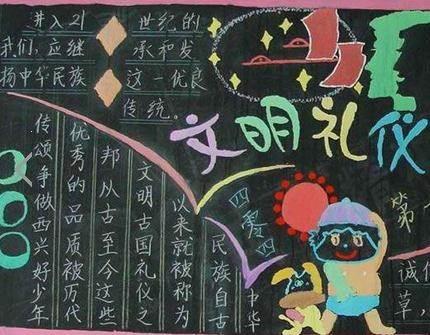 进入21 世纪的
我们，应继 承和发
扬中华民族 这一优良
传统。
文明礼仪
四零四
中华
民族自古
以来就被称为
文明古国礼仪之
邦从古至今这些
优秀的品质被历代
传颂争做西兴好少年
第
诚信
草，